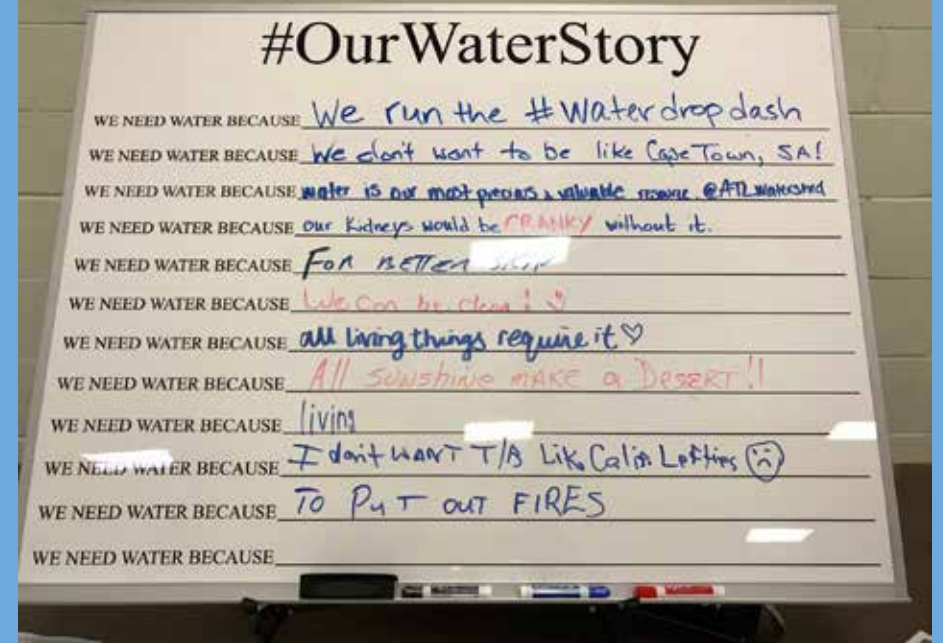 #OurWaterStory
WE NEED WATER BECAUSE We run the #Waterdropdash
WE NEED WATER BECAUSE We don't want to be like Cape Town, SA!
WE NEED WATER BECAUSE water is our most precious & valuable resource @ATLWatershed
WE NEED WATER BECAUSE our kidneys would be CRANKY without it.
WE NEED WATER BECAUSE FOR BETTER SKIN
WE NEED WATER BECAUSE We Can be clean!
WE NEED WATER BECAUSE all living things require it ♡
WE NEED WATER BECAUSE All sunshine MAKE a DESERT!!
WE NEED WATER BECAUSE living
WE NEED WATER BECAUSE I don't WANT T/B Like Lefties
WE NEED WATER BECAUSE TO PUT OUT FIRES
WE NEED WATER BECAUSE